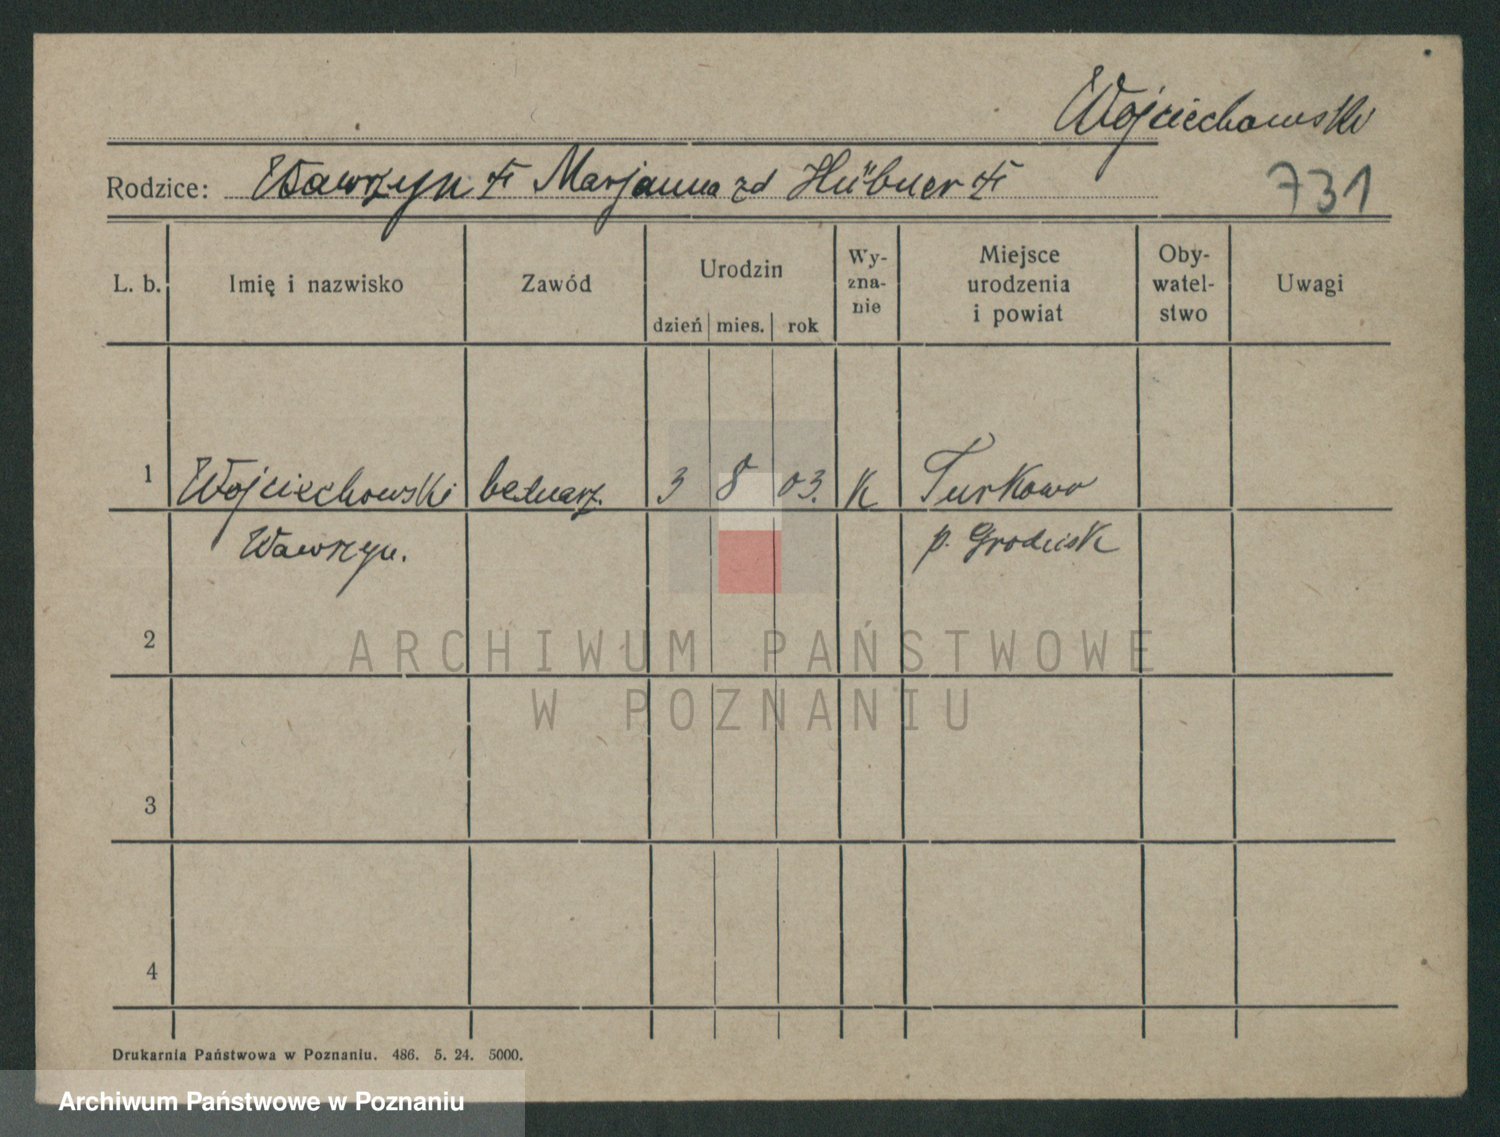 Wojciechowski
Rodzice: Wawrzyn † Marjanna zd Hübner †
731
L. b. Imię i nazwisko Zawód Urodzin dzień mies. rok Wy-zna-nie Miejsce urodzenia i powiat Oby-watel-stwo Uwagi
1 Wojciechowski bednarz. 3 8 03. K Turkowo
Wawrzyn. p. Grodzisk
2
ARCHIWUM PAŃSTWOWE
W POZNANIU
3
4
Drukarnia Państwowa w Poznaniu. 486. 5. 24. 5000.
Archiwum Państwowe w Poznaniu